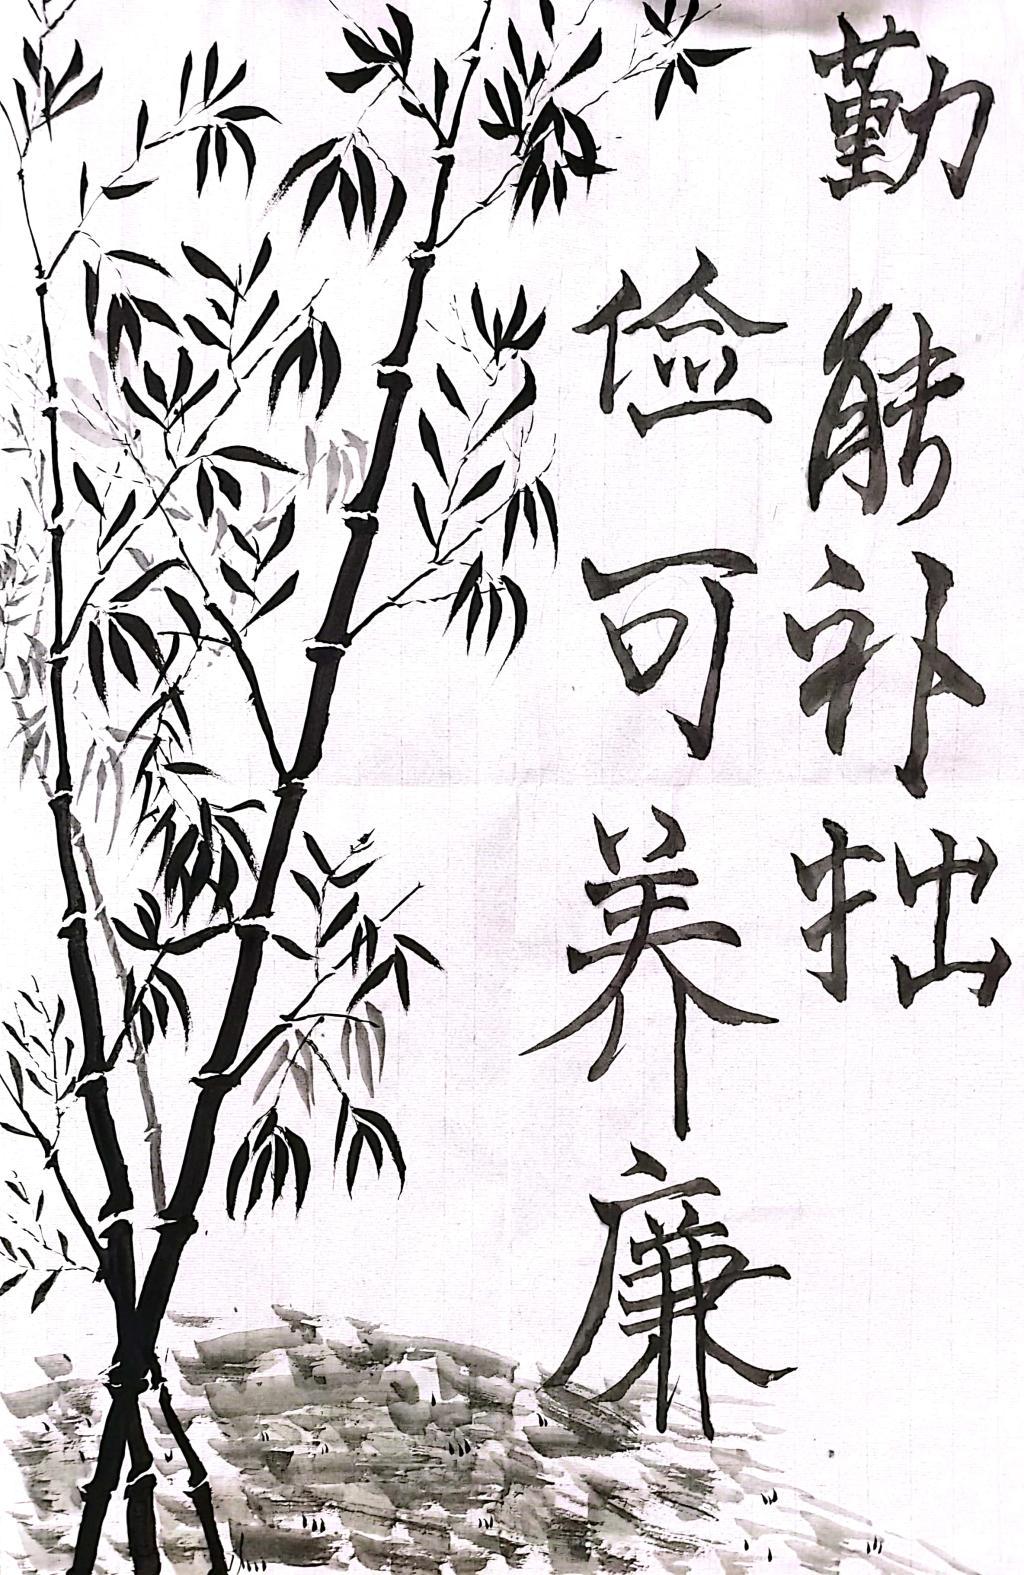 勤能补拙
俭可养廉